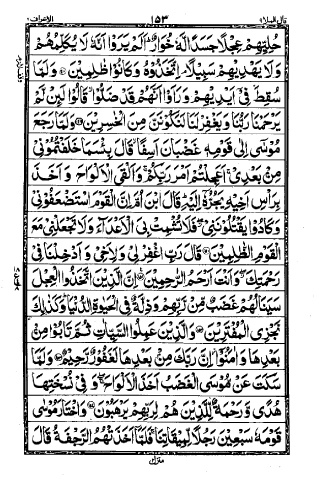 قال الملا ٩ ١٥٣ الاعراف ٧
حُلِيِّهِمْ عِجْلًا جَسَدًا لَّهٗ خُوَارٌ ؕ اَلَمْ يَرَوْا اَنَّهٗ لَا يُكَلِّمُهُمْ
وَلَا يَهْدِيْهِمْ سَبِيْلًا ۘ اِتَّخَذُوْهُ وَكَانُوْا ظٰلِمِيْنَ ۝ وَلَمَّا
سُقِطَ فِيْۤ اَيْدِيْهِمْ وَرَاَوْا اَنَّهُمْ قَدْ ضَلُّوْا ۙ قَالُوْا لَئِنْ لَّمْ
يَرْحَمْنَا رَبُّنَا وَيَغْفِرْ لَنَا لَنَكُوْنَنَّ مِنَ الْخٰسِرِيْنَ ۝ وَلَمَّا رَجَعَ
مُوْسٰۤى اِلٰى قَوْمِهٖ غَضْبَانَ اَسِفًا ۙ قَالَ بِئْسَمَا خَلَفْتُمُوْنِيْ
مِنْۢ بَعْدِيْ ۚ اَعَجِلْتُمْ اَمْرَ رَبِّكُمْ ۚ وَاَلْقَى الْاَلْوَاحَ وَاَخَذَ
بِرَاْسِ اَخِيْهِ يَجُرُّهٗۤ اِلَيْهِ ؕ قَالَ ابْنَ اُمَّ اِنَّ الْقَوْمَ اسْتَضْعَفُوْنِيْ
وَكَادُوْا يَقْتُلُوْنَنِيْ ۖ فَلَا تُشْمِتْ بِيَ الْاَعْدَآءَ وَلَا تَجْعَلْنِيْ مَعَ
الْقَوْمِ الظّٰلِمِيْنَ ۝ قَالَ رَبِّ اغْفِرْ لِيْ وَلِاَخِيْ وَاَدْخِلْنَا فِيْ
رَحْمَتِكَ ۖ وَاَنْتَ اَرْحَمُ الرّٰحِمِيْنَ ۝ اِنَّ الَّذِيْنَ اتَّخَذُوا الْعِجْلَ
سَيَنَالُهُمْ غَضَبٌ مِّنْ رَّبِّهِمْ وَذِلَّةٌ فِي الْحَيٰوةِ الدُّنْيَا ؕ وَكَذٰلِكَ
نَجْزِي الْمُفْتَرِيْنَ ۝ وَالَّذِيْنَ عَمِلُوا السَّيِّاٰتِ ثُمَّ تَابُوْا مِنْۢ
بَعْدِهَا وَاٰمَنُوْۤا ۫ اِنَّ رَبَّكَ مِنْۢ بَعْدِهَا لَغَفُوْرٌ رَّحِيْمٌ ۝ وَلَمَّا
سَكَتَ عَنْ مُّوْسَى الْغَضَبُ اَخَذَ الْاَلْوَاحَ ۖ وَفِيْ نُسْخَتِهَا
هُدًى وَّرَحْمَةٌ لِّلَّذِيْنَ هُمْ لِرَبِّهِمْ يَرْهَبُوْنَ ۝ وَاخْتَارَ مُوْسٰى
قَوْمَهٗ سَبْعِيْنَ رَجُلًا لِّمِيْقَاتِنَا ۚ فَلَمَّاۤ اَخَذَتْهُمُ الرَّجْفَةُ قَالَ
منزل ٢